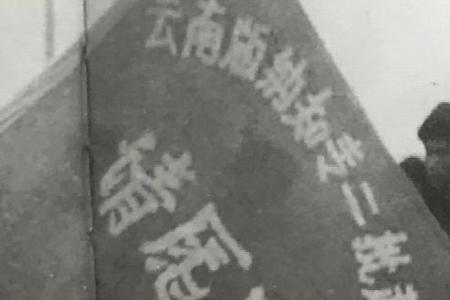 云南版纳知青二批
请愿